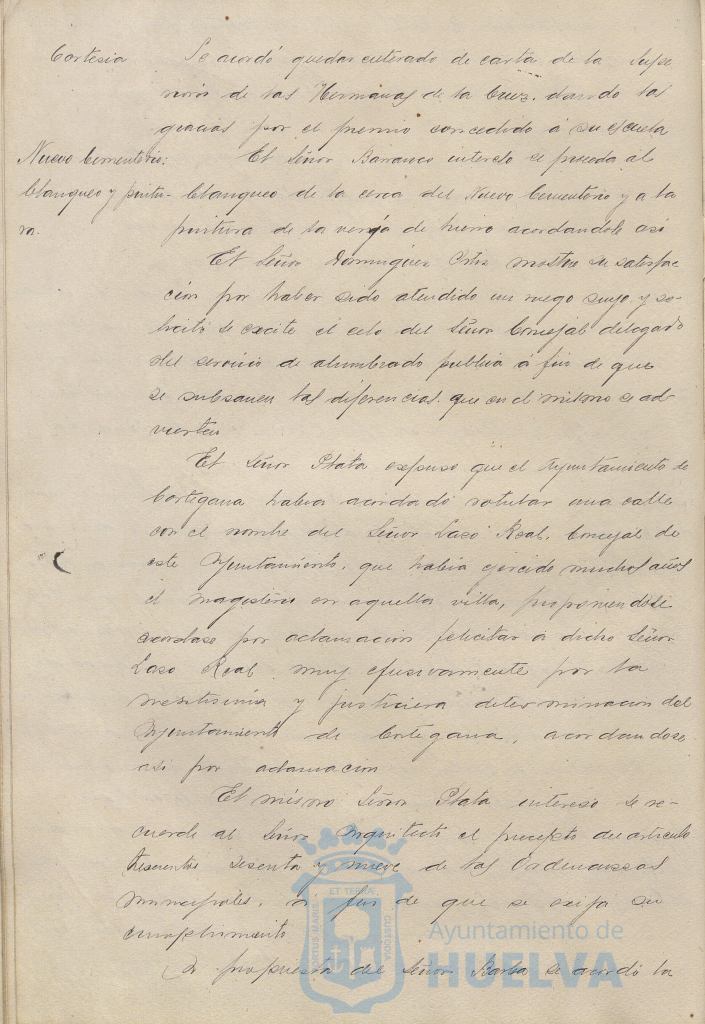 Cortesia Se acordó quedar enterado de carta de la Supe
riora de las Hermanas de la Cruz, dando las
gracias por el premio concedido á su escuela
Nuevo Cementerio: El Señor Barranco interesó se proceda al
blanqueo y pintu- blanqueo de la cerca del Nuevo Cementerio y a la
ra. pintura de la verja de hierro acordandose así
El Señor Dominguez Ortiz mostró su satisfac
ción por haber sido atendido un ruego suyo y so-
licitó se excite el celo del Señor Concejal delegado
del servicio de alumbrado publico á fin de que
se subsanen las diferencias que en el mismo se ad-
vierten
El Señor Plata expuso que el Ayuntamiento de
Cortegana habia acordado rotular una calle
con el nombre del Señor Laso Real, Concejal de
este Ayuntamiento, que habia ejercido muchos años
el magisterio en aquella villa, proponiendose
acordase por aclamación felicitar á dicho Señor
Laso Real muy efusivamente por la
meritisima y justiciera determinacion del
Ayuntamiento de Cortegana, acordandose
asi por aclamacion
El mismo Señor Plata interesó se re-
cuerde al Señor Arquitecto el precepto del articulo
trescientos sesenta y nueve de las Ordenanzas
municipales, á fin de que se exija su
cumplimiento
A propuesta del Señor Barba se acordó la
PORTUS MARIS ET TERRAE CUSTODIA
Ayuntamiento de
HUELVA